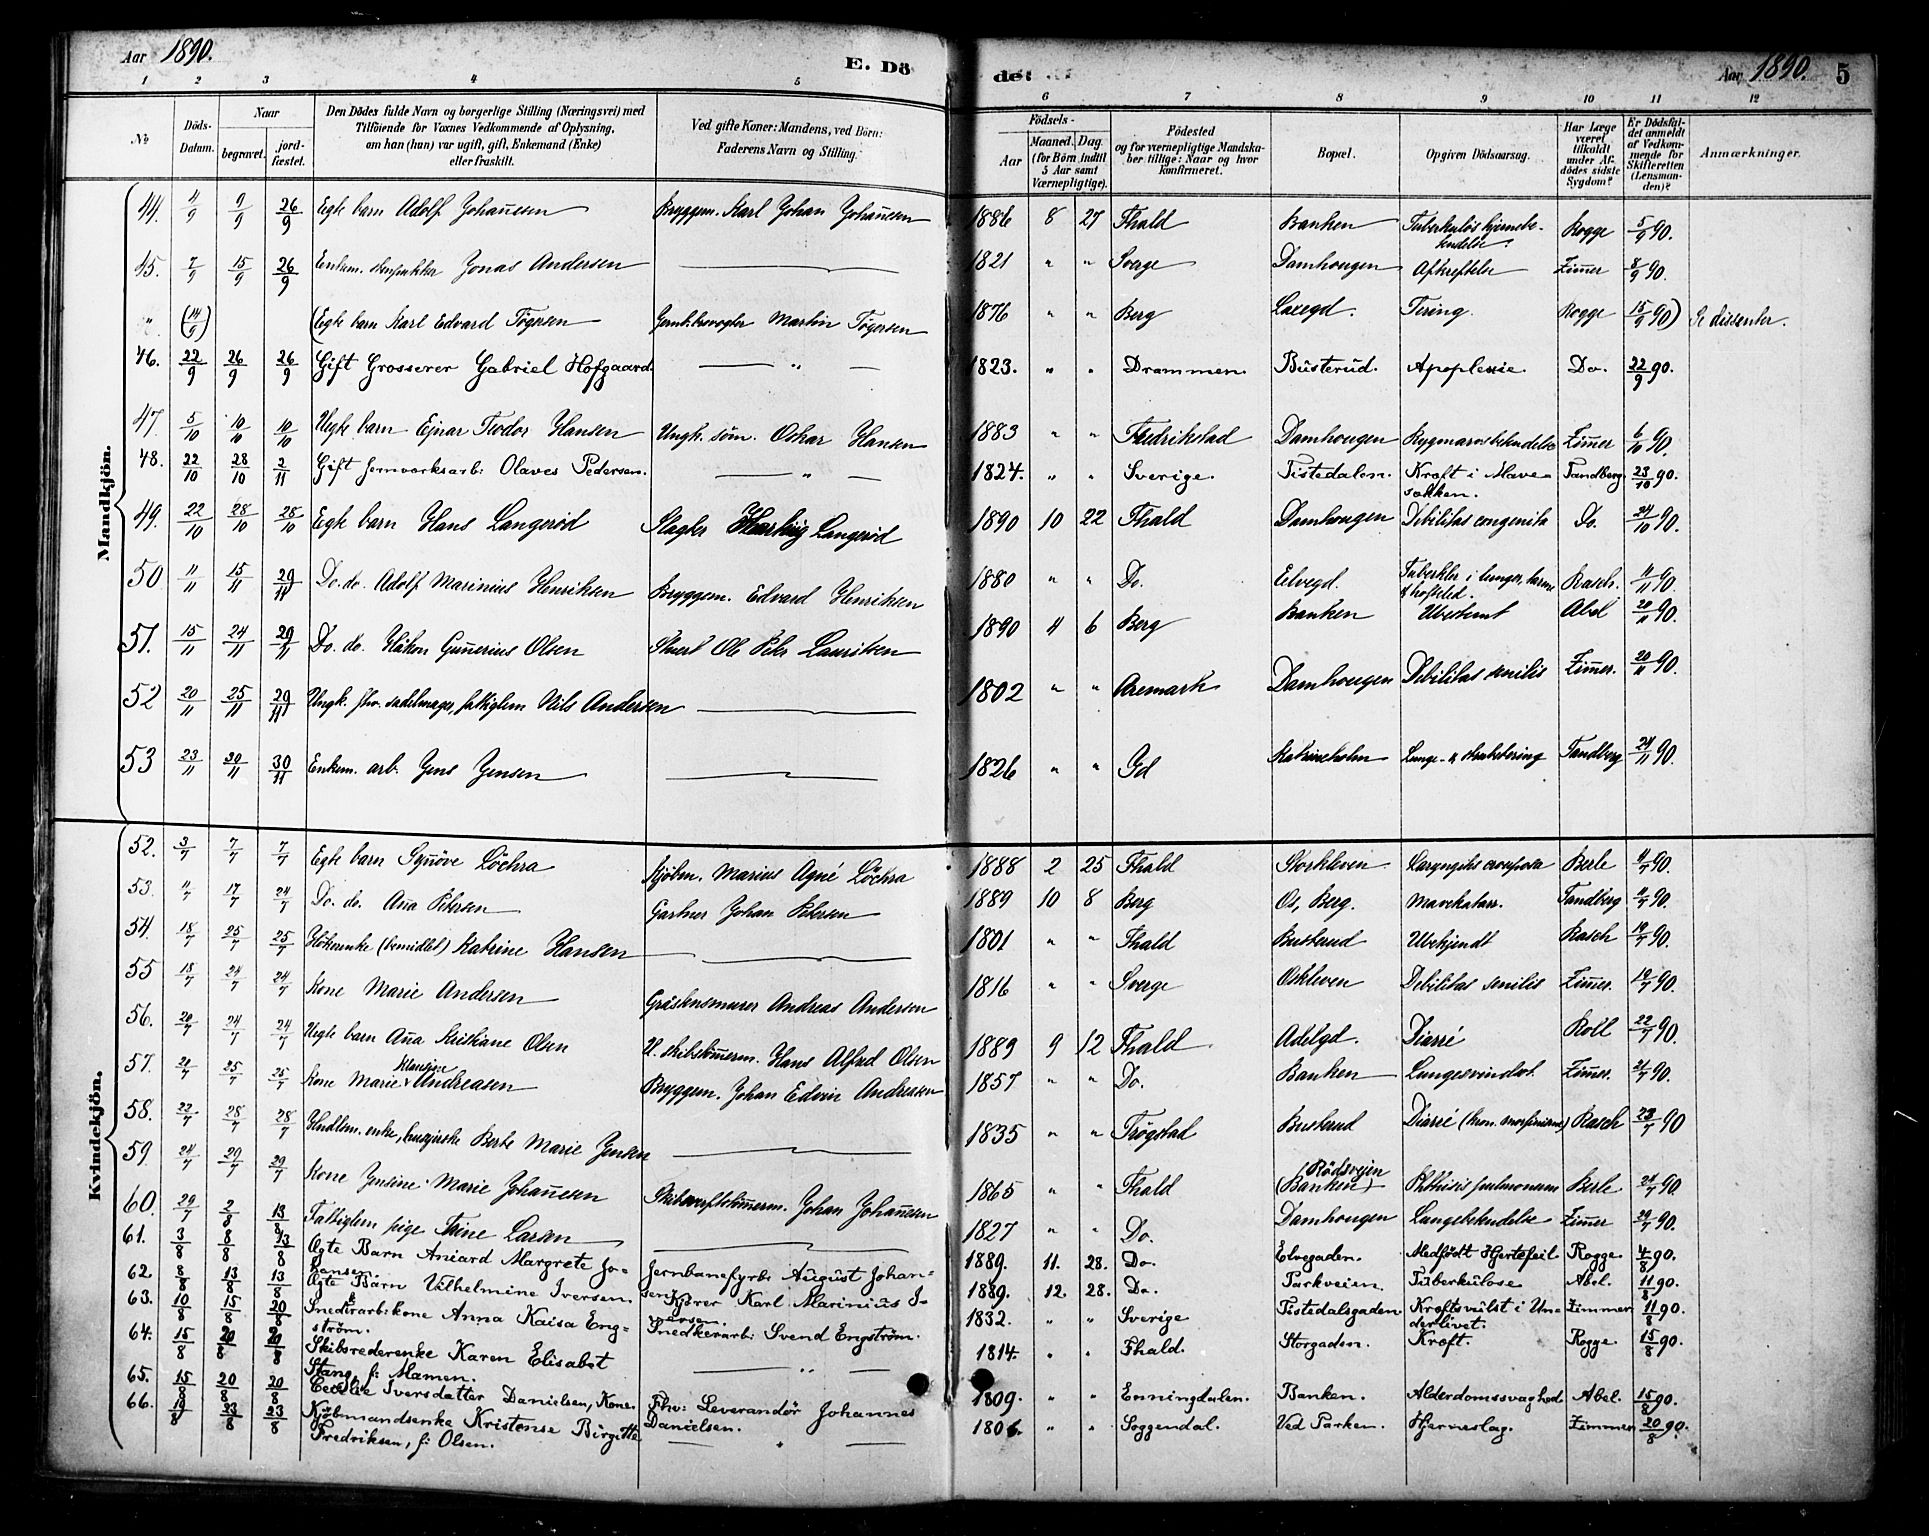 Aar 1890. E. Dö
de: Aar 1890. 5
1 2 3 4 5 6 7 8 9 10 11 12
No
Döds-Datum.
Naar
begravet.
jord-fæstet.
Den Dödes fulde Navn og borgerlige Stilling (Næringsvei) med
Tilföiende for Voxnes Vedkommende af Oplysning,
om han (hun) var ugift, gift, Enkemand (Enke)
eller fraskilt.
Ved gifte Koner: Mandens, ved Börn:
Faderens Navn og Stilling.
Födsels-
Aar
Maaned. Dag.
(for Börn indtil
5 Aar samt
Værnepligtige).
Födested
og for værnepligtige Mandska-
ber tillige: Naar og hvor
konfirmeret.
Bopæl.
Opgiven Dödsaarsag.
Har Læge
været
tilkaldt
under Af-
dödes sidste
Sygdom?
Er Dödsfal-
det anmeldt
af Vedkom-
mende for
Skifteretten
(Lensman-
den)?
Anmærkninger.
Mandkjön.
44. 4/9 9/9 26/9 Egte barn Adolf Johannsen Bryggem. Karl Johan Johannsen 1886 8 27 Fhald Banken Tuberkuløs hjernebe-
tendelse Rogge 5/9 90.
45. 7/9 15/9 26/9 Enkem. Jonas Andersen 1821 " " Sverge Damhougen Afkreftelse Zimer 8/9 90.
(14/9) (Egte barn Karl Edvard Tögersen Martin Tögersen 1876 " " Berg Laxegd. Tæring Rogge 15/9 90) Se dissenter.
46. 22/9 26/9 26/9 Gift Grosserer Gabriel Hofgaard. " 1823. " " Drammen. Busterud. Apoplexie. Do. 22/9 90.
47. 5/10 10/10 10/10 Uegte barn Ejnar Teodor Hansen Ungk. söm. Oskar Hansen 1883 " " Fredrikstad Damhougen Rygmarvsbetendelse Zimer 6/10 90.
48. 22/10 28/10 2/11 Gift jernværksarb: Olaves Pedersen. " 1824. " " Sverige. Tistedalen. Kræft i Mave-
sækken. Tandberg. 23/10 90.
49. 22/10 28/10 28/10 Egte barn Hans Langeröd Slagter Langeröd 1890 10 22 Fhald Damhougen Debilitas congenita Do. 24/10 90.
50 11/11 15/11 29/11 Do. do. Adolf Marinius Henriksen Bryggem. Edvard Henriksen 1880 " " Do. Elvegd. Tuberkler i lunger, tarme
& hofteled. Rasch. 11/11 90.
51. 15/11 24/11 29/11 Do. do. Håkon Gunerius Olsen Stuert Ole Peter Lauritsen 1890 4 6 Berg Banken Ubestemt Abel 20/11 90.
52 20/11 25/11 29/11 Ungk. fhv. sadelmager, fattiglem Nils Andersen 1802 " " Aremark Damhougen Debilitas senilis Zimer. 20/11 90.
53 23/11 30/11 30/11 Enkem. arb. Jens Jensen 1826 " " Gd Katrineholm Lunge- & strubetæring Tandberg 24/11 90.
Kvindekjön.
52. 3/7 7/7 7/7 Egte barn Synöve Löchra Kjöbm. Marius Agné Löchra 1888 2 25 Fhald Storkleven Laryngitis crouposa Berle 4/7 90.
53. 11/7 17/7 24/7 Do. do. Anna Petersen Gartner Johan Petersen 1889 10 8 Berg Os, Berg. Mavekatarr. Tandberg 11/7 90.
54. 18/7 25/7 25/7 Hökerenke (bemidlet) Katrine Hansen 1801 " " Fhald Busterud Ubekjendt Rasch 19/7 90.
55 18/7 24/7 24/7 Kone Marie Andersen Gråstensmurer Andreas Andersen 1816 " " Sverge Oskleven Debilitas senilis Zimer. 19/7 90.
56. 20/7 24/7 24/7 Uegte barn Anna Kristiane Olsen U. skibstömerm. Hans Alfred Olsen 1889 9 12 Fhald Adelgd. Diarré Roll 22/7 90.
57. 21/7 25/7 25/7 Kone Marie Klausine Andreasen Bryggem. Johan Edvin Andreasen 1857 " " Do. Banken Lungesvindsot Zimer. 21/7 90.
58. 22/7 28/7 28/7 Handlem. enke, Berte Marie Jensen 1835 " " Trögstad Busterud Diarré (kron. morfinisme) Rasch 23/7 90
59 24/7 29/7 29/7 Kone Jensine Marie Johannesen Skibsverftstömerm. Johan Johannesen 1865 " " Fhald Rödsveien
(Banken) Phthisis pulmonum Berle 24/7 90.
60. 29/7 2/8 13/8 Fattiglem pige Trine Larsen 1827 " " Do. Damhougen Lungebetendelse Zimer 29/7 90.
61. 3/8 8/8 13/8 Ægte Barn Aniard Margrete Jo-
hansen Jernbanefyrb: August Johan-
sen. 1889. 11. 28. Do. Elvegaden. Medfödt Hjertefeil Rogge. 4/8 90.
62. 8/8 13/8 13/8 Ægte Barn Vilhelmine Iversen. Kjörer Karl Marinius I-
versen. 1889. 12. 28. Do. Parkveien. Tuberkulose. Abel. 11/8 90.
63. 10/8 15/8 20/8 Snedkerarb: kone Anna Kaisa Eng-
ström. Snedkerarb: Svend Engström. 1832. " " Sverige Tistedalsgaden Kræftsvulst i Un-
derlivet. Zimmer 11/8 90.
64. 15/8 20/8 20/8 Skibsrederenke Karen Elisabet
Stang, f: Mamen. " 1814. " " Fhald. Storgaden. Kræft. Rogge 15/8 90.
65. 15/8 20/8 20/8 Cecilie Iversdatter Danielsen, Kone. Fhv: Leverandör Johannes
Danielsen. 1809. " " Enningdalen. Banken. Alderdomssvaghed Abel. 15/8 90.
66. 19/8 23/8 23/8 Kjöbmandsenke Kristense Birgitte
Fredriksen, f: Olsen. " 1806. " " Soggendal. Ved Parken. Hjerneslag. Zimmer 20/8 90.